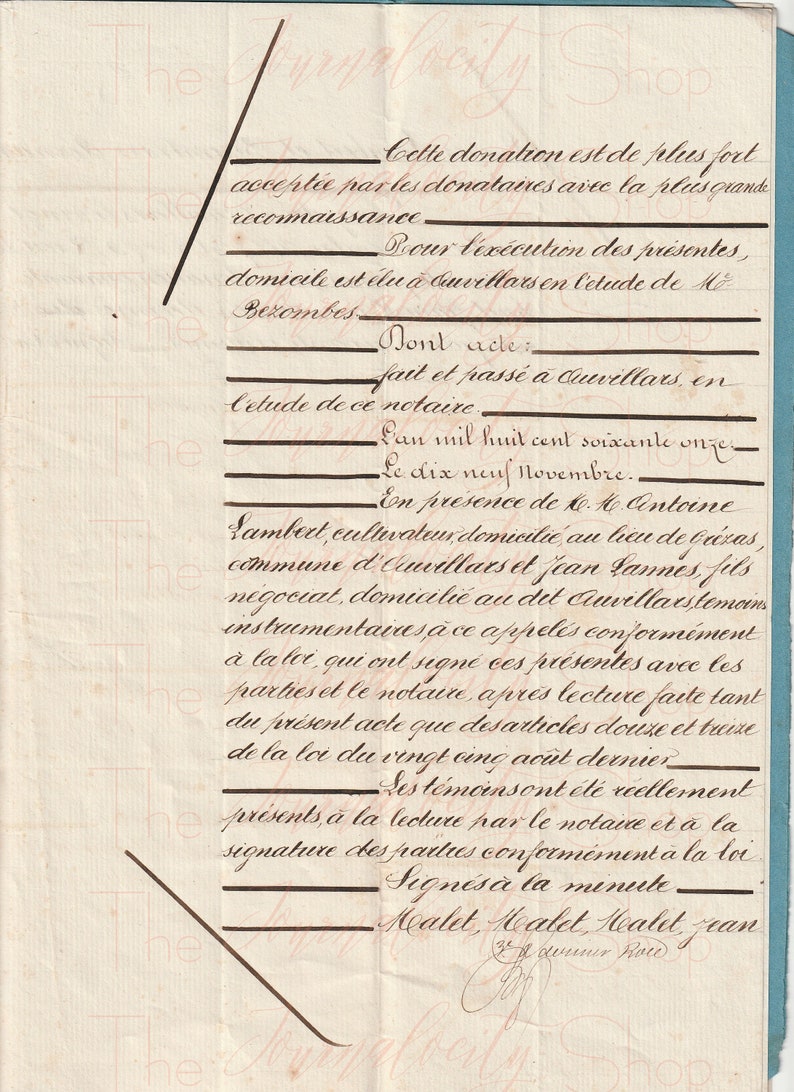 Cette donation est de plus fort
acceptée par les donataires avec la plus grande
reconnaissance
Pour l'exécution des présentes,
domicile est élu à Auvillars en l'étude de Me
Bezombes.
Dont acte:
fait et passé à Auvillars, en
l'etude de ce notaire.
L'an mil huit cent soixante onze.
Le dix neuf Novembre.
En présence de M. M. Antoine
Lambert, cultivateur, domicilié au lieu de Grézas,
commune d'Auvillars et Jean Lannes, fils
négociat, domicilié au dit Auvillars, temoins
instrumentaires à ce appelés conformément
à la loi, qui ont signé ces présentes avec les
parties et le notaire, après lecture faite tant
du présent acte que des articles douze et treize
de la loi du vingt cinq août dernier
Les témoins ont été réellement
présents, à la lecture par le notaire et à la
signature des parties conformément à la loi.
Signés à la minute
Malet, Malet, Malet, Jean
3e & dernier Role
The Journalocity Shop